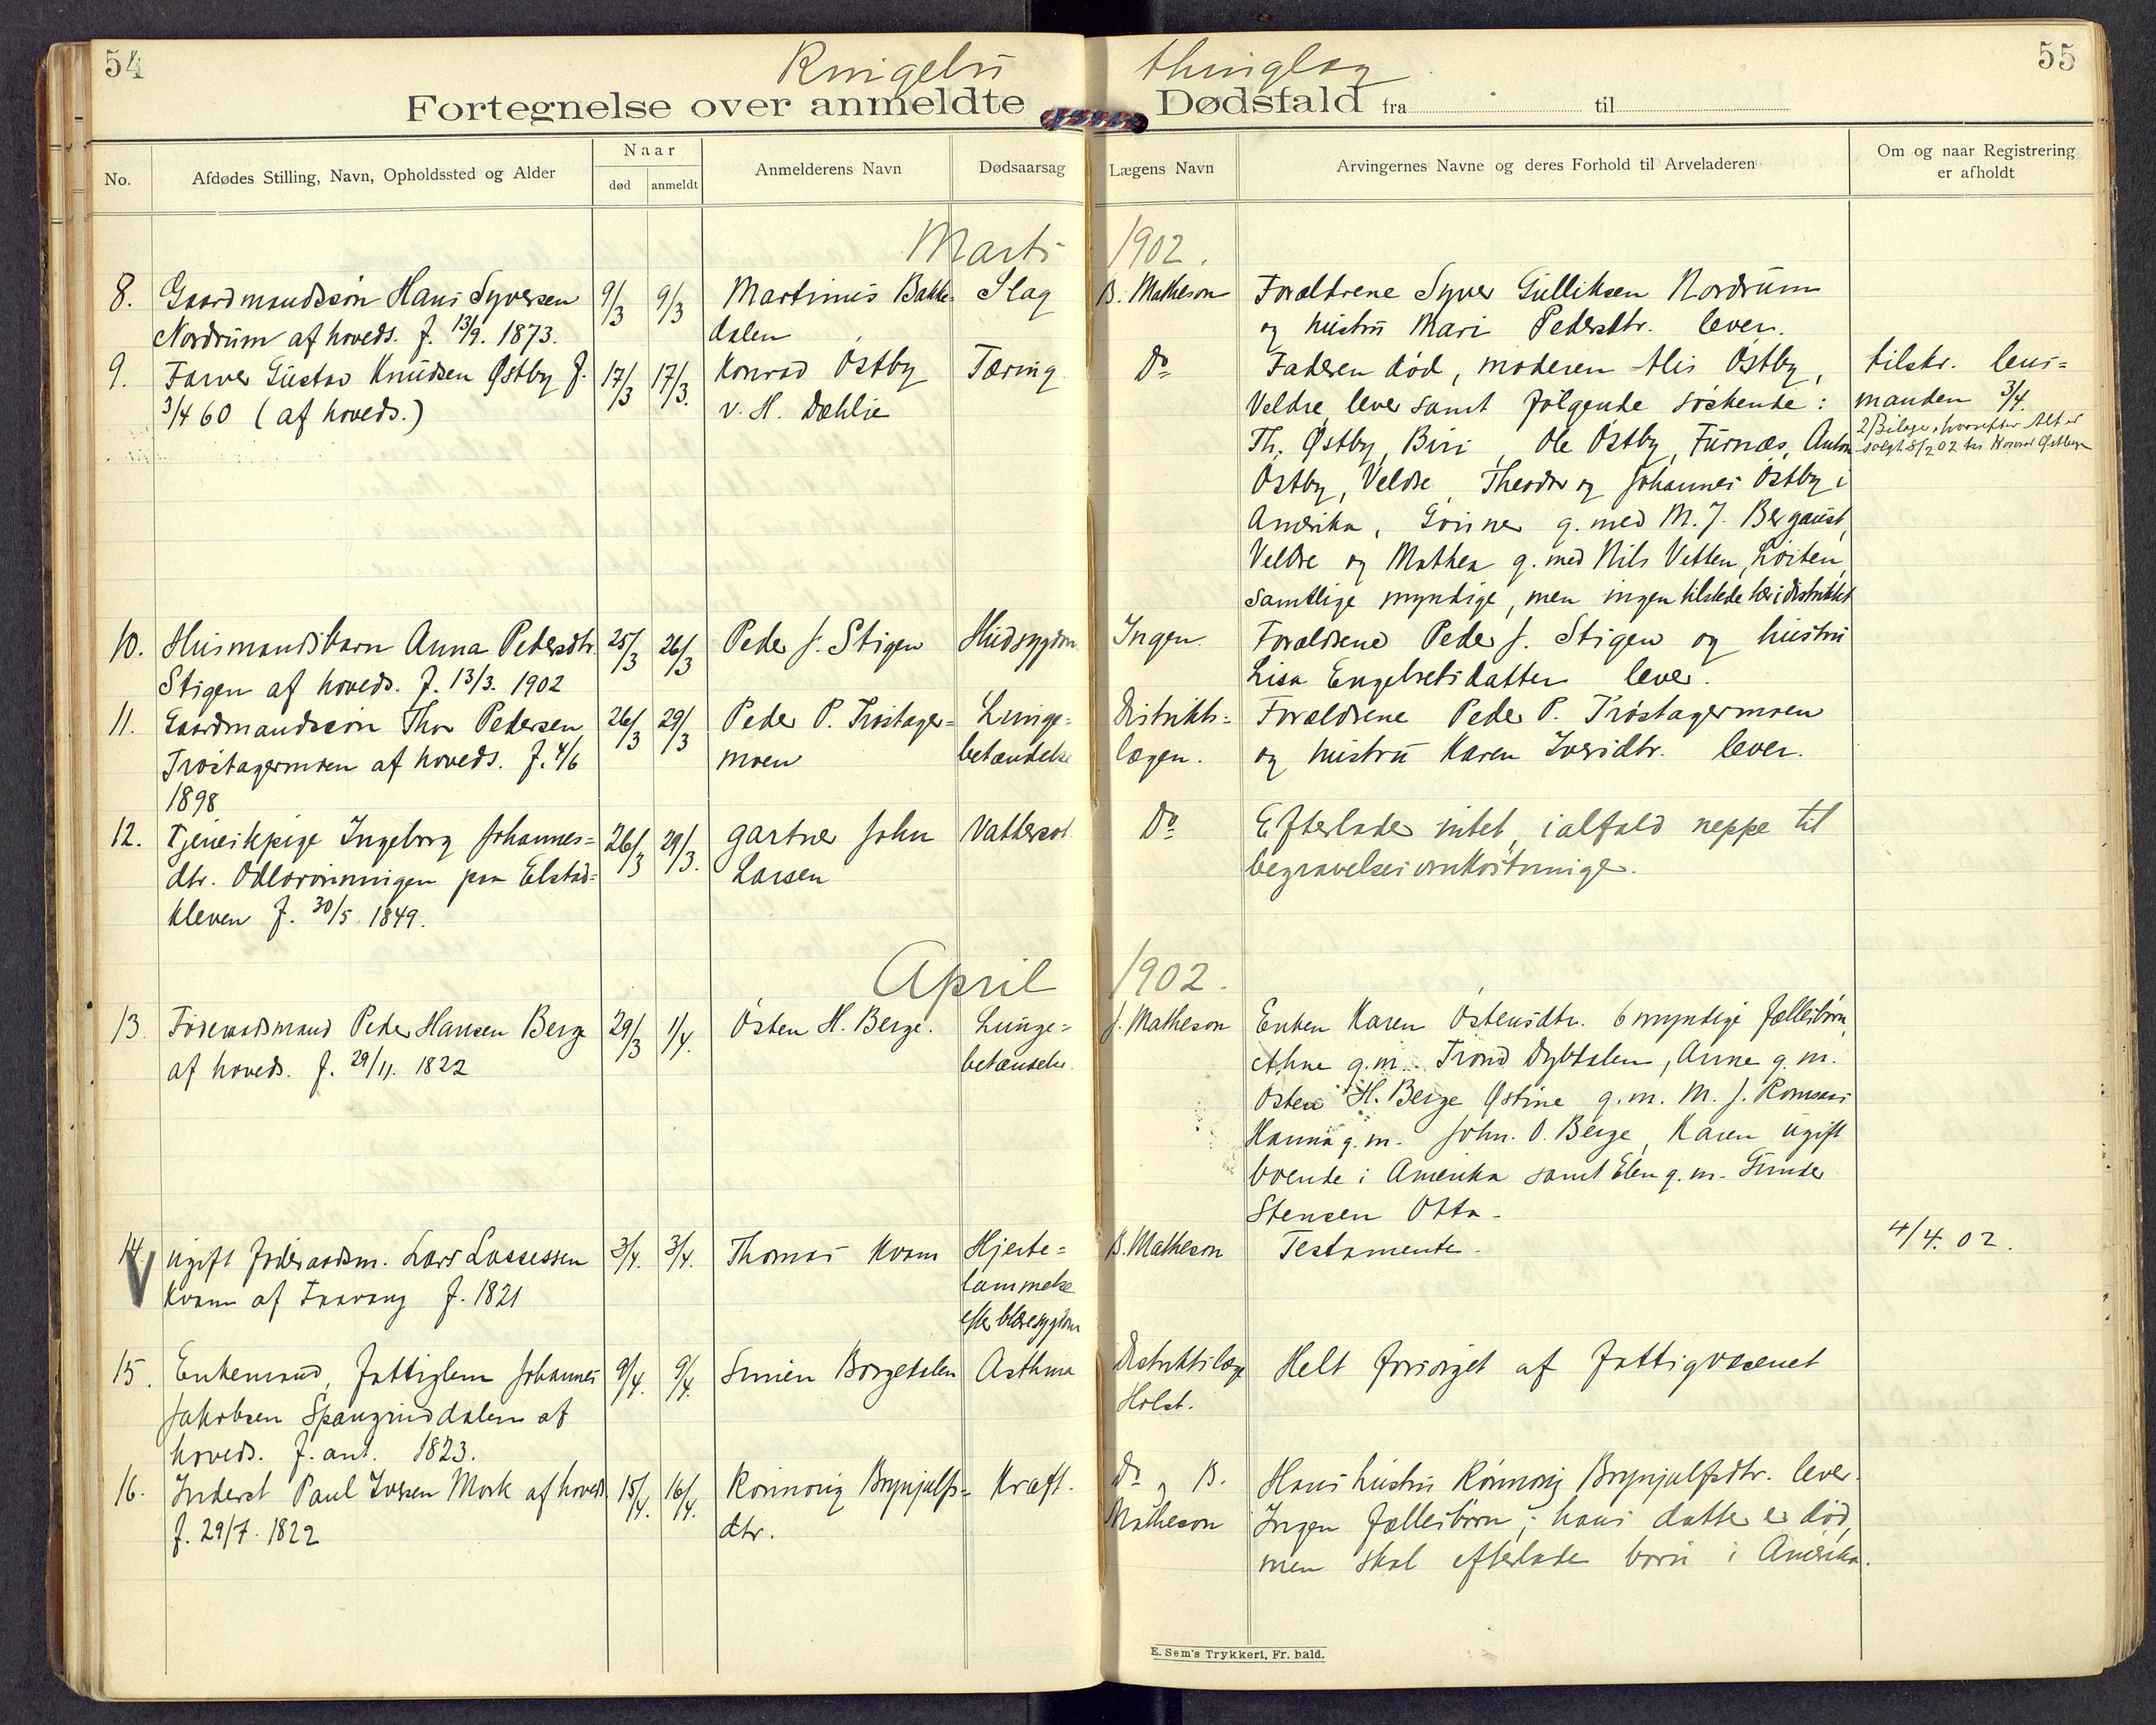 54
55
Ringebu thinglag
Fortegnelse over anmeldte Dødsfald fra til
No.
Afdødes Stilling, Navn, Opholdssted og Alder
Naar
død
anmeldt
Anmelderens Navn
Dødsaarsag
Lægens Navn
Arvingernes Navne og deres Forhold til Arveladeren
Om og naar Registrering
er afholdt
Marts 1902.
8. Gaardmandssøn Hans Syversen 9/3 9/3 Martinus Bakke- Slag B. Matheson Forældrene Syver Gulliksen Nordrum
Nordrum af hoveds. f. 13/9. 1873. dalen og hustru Mari Pedersdtr. lever.
9. Farver Gustav Knudsen Østby f. 17/3 17/3. Konrad Østby Tæring Do Faderen død, moderen Alis Østby, tilskr. lens=
3/4 60 (af hoveds.) v. H. Dæhlie Veldre lever samt følgende søskende: manden 3/4.
Th. Østby, Biri, Ole Østby, Furnæs, Anton 2 Bilage, hvorefter Alt er
Østby, Veldre, Theodor og Johannes Østby i
Amerika, g. med M. J. Bergaust,
Veldre og Mathea g. med Nils Vetten, Løiten,
samtlige myndige, men ingen tilstede her i distriktet
10. Husmandsbarn Anna Pedersdtr. 25/3 26/3 Peder J. Stigen Hudsygdom Ingen. Forældrene Peder J. Stigen og hustru
Stigen af hoveds. f. 13/3. 1902 Lisa Engebretsdatter lever.
11. Gaardmandssøn Thor Pedersen 26/3 29/3 Peder P. Trøstager= Lunge= Distrikts= Forældrene Peder P. Trøstagermoen
Trøstagermoen af hoveds. f. 4/6 moen betændelse lægen. og hustru Karen Iversdtr. lever.
1898
12. Tjenestepige Ingeborg Johannes= 26/3 29/3. gartner John Vattersot Do Efterlader intet, ialfald neppe til
dtr. paa Elstad= Larsen begravelsesomkostninger.
kleven f. 30/5. 1849.
April 1902.
13. Føderaadsmand Peder Hansen Berge 29/3 1/4. Østen H. Berge. Lunge= J. Matheson Enken Karen Østensdtr. 6 myndige fællesbørn,
af hoveds. f. 29/11. 1822 betændelse. g.m. Trond Dybdalen, Anne g.m.
Østen H. Berge Østine g.m. M. J. Romsaas
Hanna g.m. John. O. Berge, Karen ugift
boende i Amerika samt Elen g.m. Gunder
Stensen Otta.
14. ugift føderaadsm. Lars Lassessen 3/4. 3/4. Thomas Kvam Hjerte= B. Matheson Testamente. 4/4. 02.
Kvam af Faavang f. 1821 lammelse
efter blæresygdom
15. Enkemand, fattiglem Johannes 9/4. 9/4. Simen Borgedalen Asthma Distriktslæge Helt forsørget af fattigvæsenet
Jakobsen Spangruddalen af Holst.
hoveds. f. ant. 1823.
16. Inderst Paul Iversen Mork af hoveds. 15/4. 16/4. Rønnoug Brynjulfs= Kræft. Do og B. Hans hustru Rønnoug Brynjulfsdtr. lever.
f. 29/7. 1822 dtr. Matheson Ingen fællesbørn; hans datter er død,
men skal efterlade børn i Amerika.
E. Sem's Trykkeri, Fr. hald.